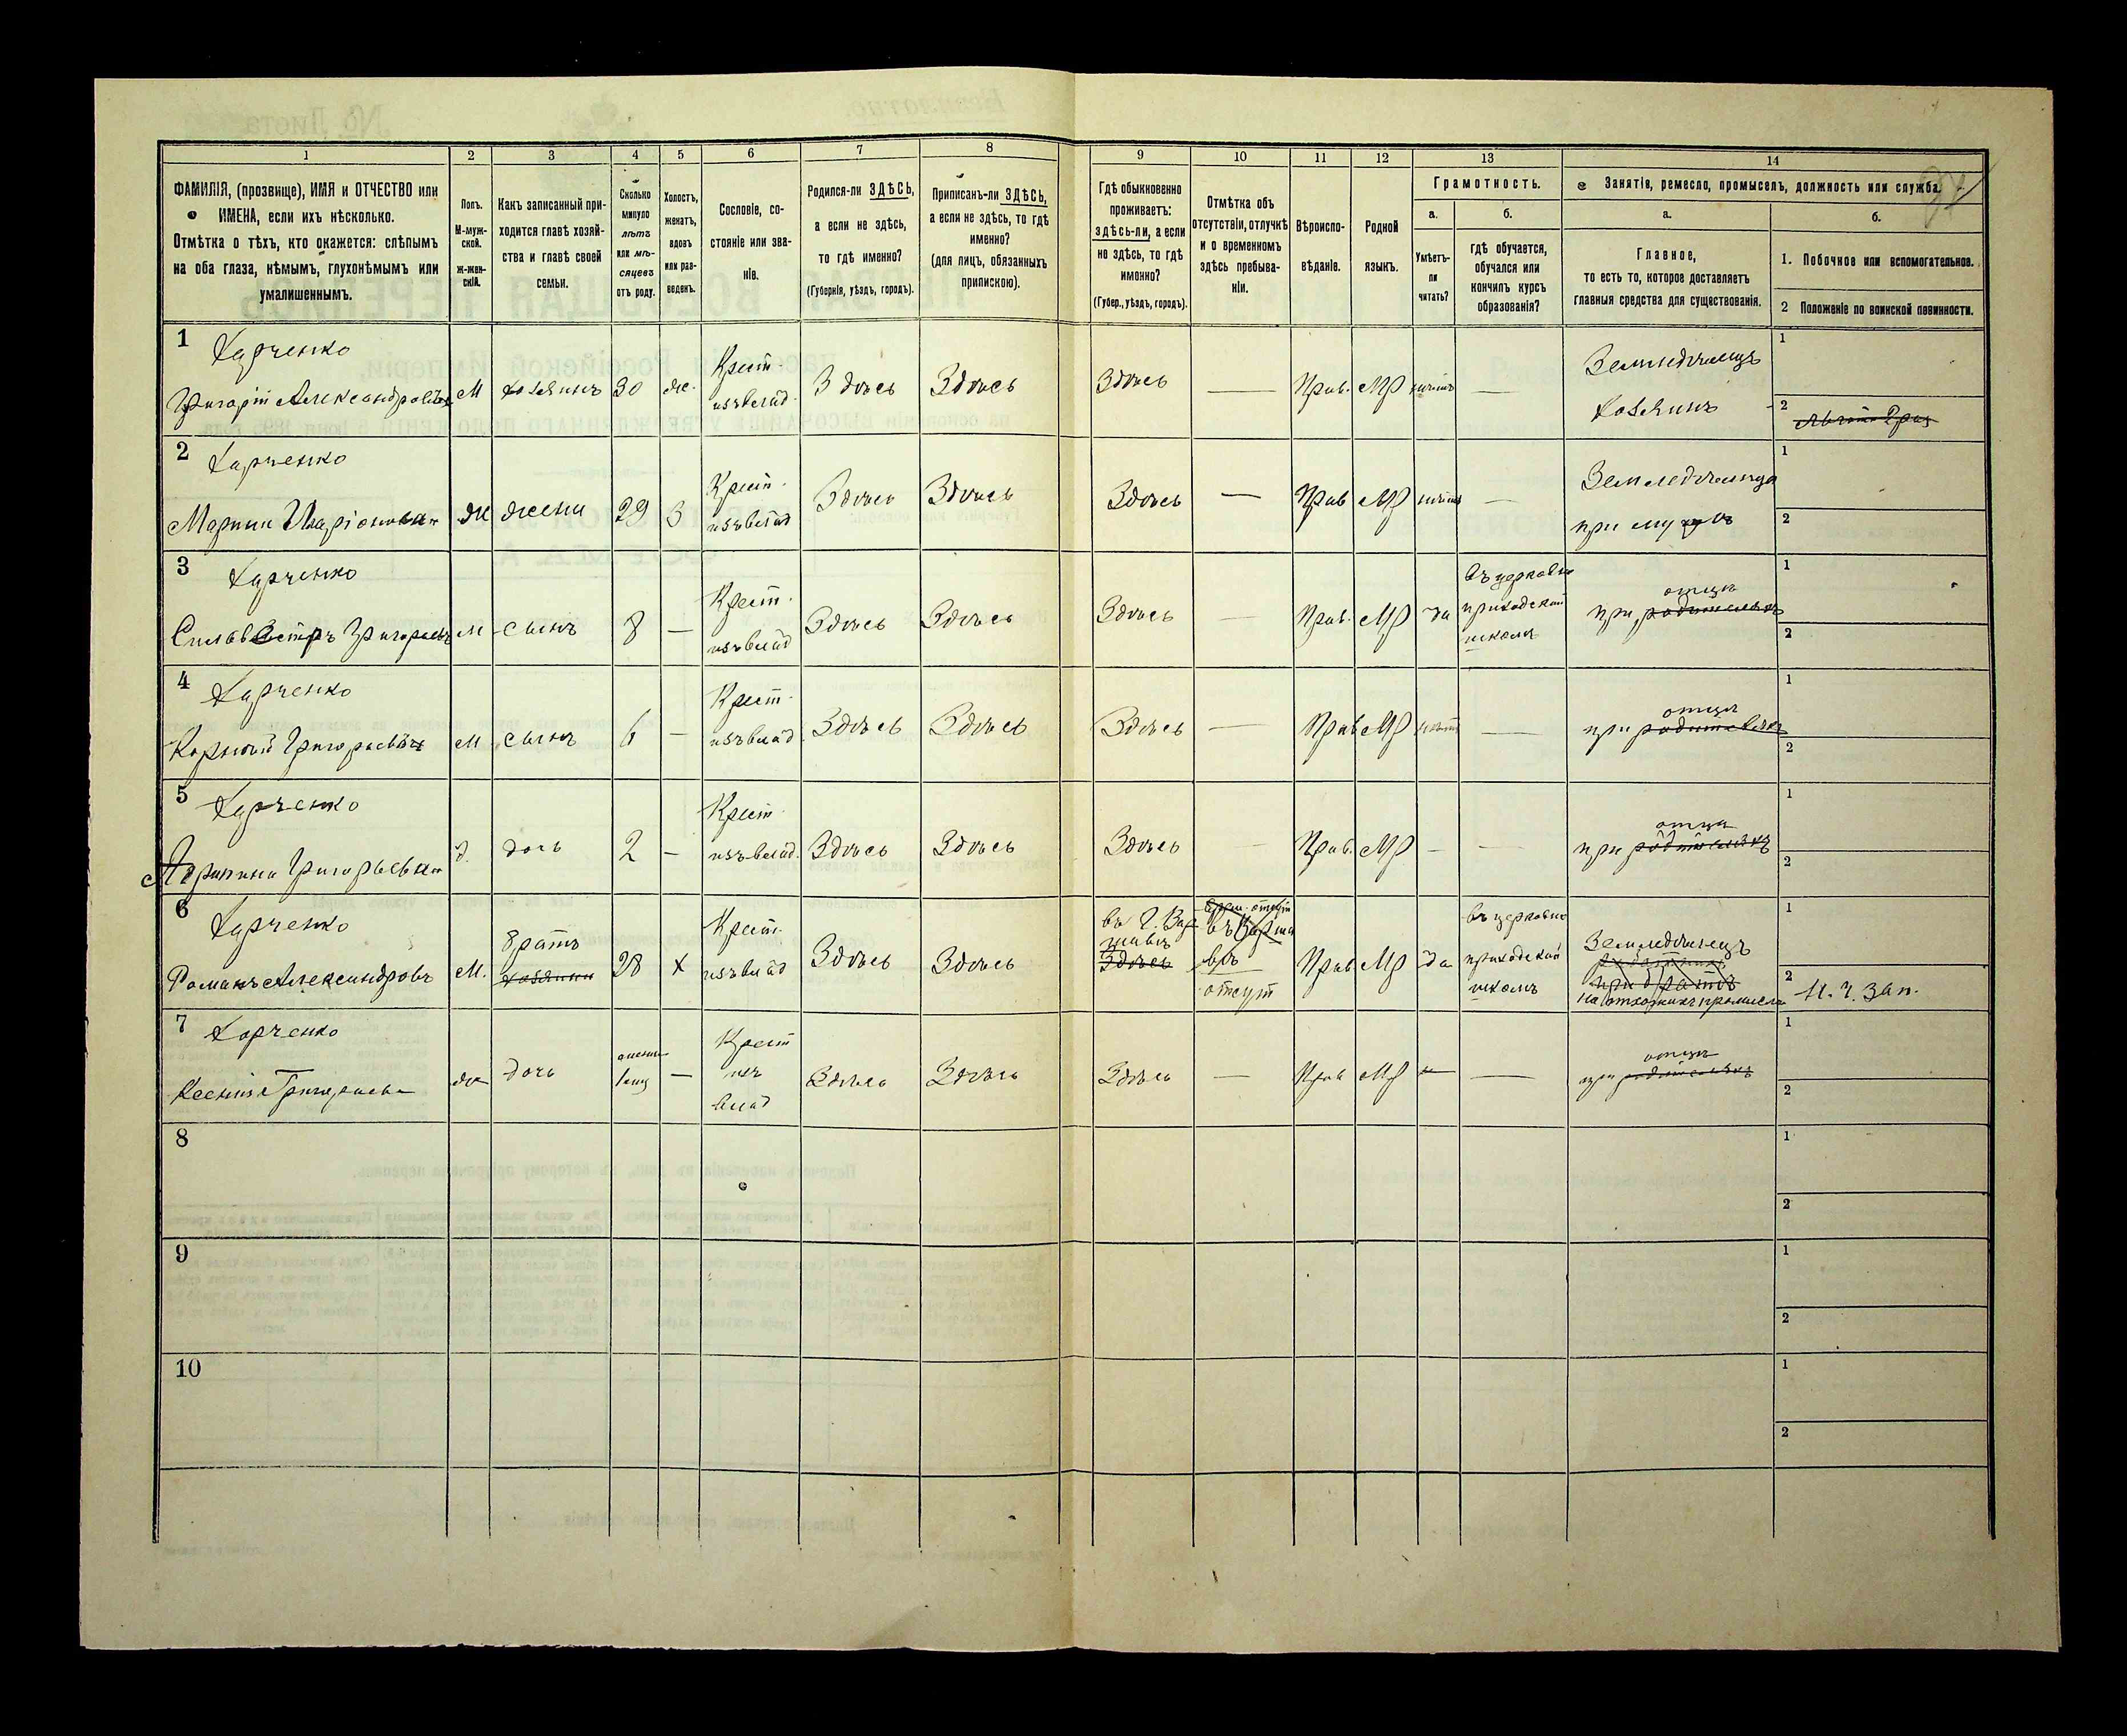 1 2 3 4 5 6 7 8 9 10 11 12 13 14
ФАМИЛІЯ, (прозвище), ИМЯ и ОТЧЕСТВО или
ИМЕНА, если ихъ нѣсколько.
Отмѣтка о тѣхъ, кто окажется: слѣпымъ
на оба глаза, нѣмымъ, глухонѣмымъ или
умалишеннымъ.
Полъ.
М-муж-
ской.
Ж-жен-
скій.
Какъ записанный при-
ходится главѣ хозяй-
ства и главѣ своей
семьи.
Сколько
минуло
лѣтъ
или мѣ-
сяцевъ
отъ роду.
Холостъ,
женатъ,
вдовъ
или раз-
веденъ.
Сословіе, со-
стояніе или зва-
ніе.
Родился-ли ЗДѢСЬ,
а если не здѣсь,
то гдѣ именно?
(Губернія, уѣздъ, городъ).
Приписанъ-ли ЗДѢСЬ,
а если не здѣсь, то гдѣ
именно?
(для лицъ, обязанныхъ
припискою).
Гдѣ обыкновенно
проживаетъ:
здѣсь-ли, а если
не здѣсь, то гдѣ
именно?
(Губер., уѣздъ, городъ).
Отмѣтка объ
отсутствіи, отлучкѣ
и о временномъ
здѣсь пребыва-
ніи.
Вѣроиспо-
вѣданіе.
Родной
языкъ.
Грамотность.
а.
Умѣетъ-
ли
читать?
б.
гдѣ обучается,
обучался или
кончилъ курсъ
образованія?
Занятія, ремесло, промыселъ, должность или служба.
а.
Главное,
то есть то, которое доставляетъ
главныя средства для существованія.
б.
1. Побочное или вспомогательное.
2 Положеніе по воинской повинности.
1 Харченко
Григорій Александровъ М хозяинъ 30 ж. Крест. изъ влад. Здѣсь Здѣсь Здѣсь — Прав. МР нѣтъ — Земледѣлецъ
хозяинъ
1
2
2 Харченко
Ж жена 29 З Крест. изъ влад Здѣсь Здѣсь Здѣсь — Прав МР — Земледѣлица
при мужѣ
1
2
3 Харченко
Сильвестръ Григорьевъ М сынъ 8 — Крест. изъ влад Здѣсь Здѣсь Здѣсь — Прав. МР да въ церковно
приходской
школѣ
при отцѣ родителяхъ
1
2
4 Харченко
Григорьевъ М сынъ 6 — Крест. изъ влад Здѣсь Здѣсь Здѣсь — Прав МР нѣтъ — при отцѣ родителяхъ
1
2
5 Харченко
Григорьева д. дочь 2 — Крест. изъ влад. Здѣсь Здѣсь Здѣсь — Прав. МР — — при отцѣ родителяхъ
1
2
6 Харченко
Романъ Александровъ М. братъ хозяина 28 х Крест. изъ влад Здѣсь Здѣсь
Здѣсь
отсут
Прав МР да въ церковно
приходской
школѣ
Земледѣлецъ
при братѣ
1
2 Н. Ч. Зап.
7 Харченко
Ксенія Григорьева дочь — Крест
изъ
влад
Здѣсь Здѣсь Здѣсь — Прав МР — — при отцѣ родителяхъ
1
2
8
1
2
9
1
2
10
1
2